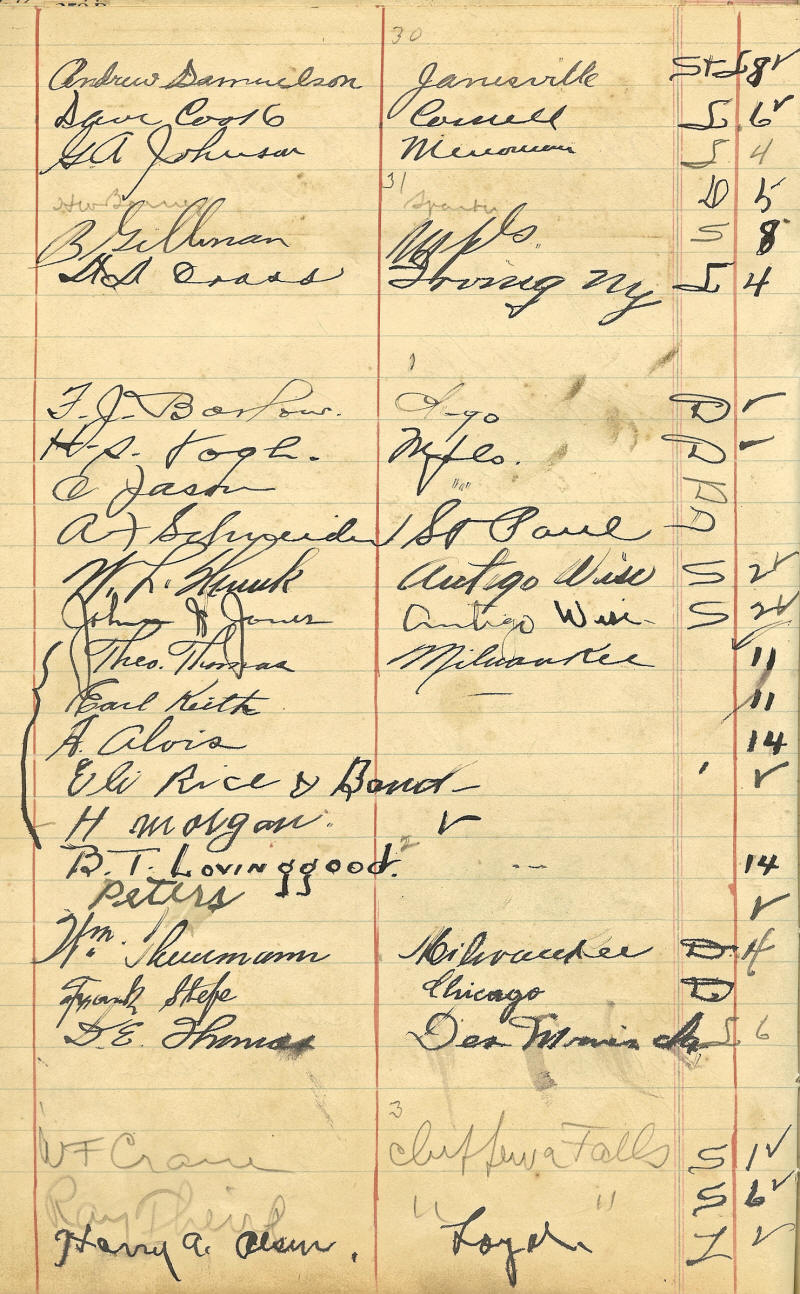 30
Andrew Samuelson Janesville St L 8 ✓
Dave Cook Cornell L 6 ✓
G A Johnson Menomin L 4
31
H W Sparta D 5
B Gillman Mpls. S 8
H S Cross Irving Ny L 4
1
F. J. Barlow. D ✓
H. S. Vogh. Mpls. D ✓
C Jason " D
A J Schneider St Paul
W. L. Antigo Wisc S 2 ✓
John J Jones Antigo Wisc. S 2 ✓
Theo. Thomas Milwaukee 11
Earl Keith 11
A. Alvis 14
Eli Rice & Band ✓
H Morgan. ✓
2
B. T. Lovinggood. 14
Peters ✓
Wm. Thurmann Milwaukee D 4
Frank Stefe Chicago D
D. E. Thomas Des Moines Ia L 6
3
W F Crane Chippewa Falls S 1 ✓
Ray " " S 6 ✓
Harry A. Olson. Loyd L ✓